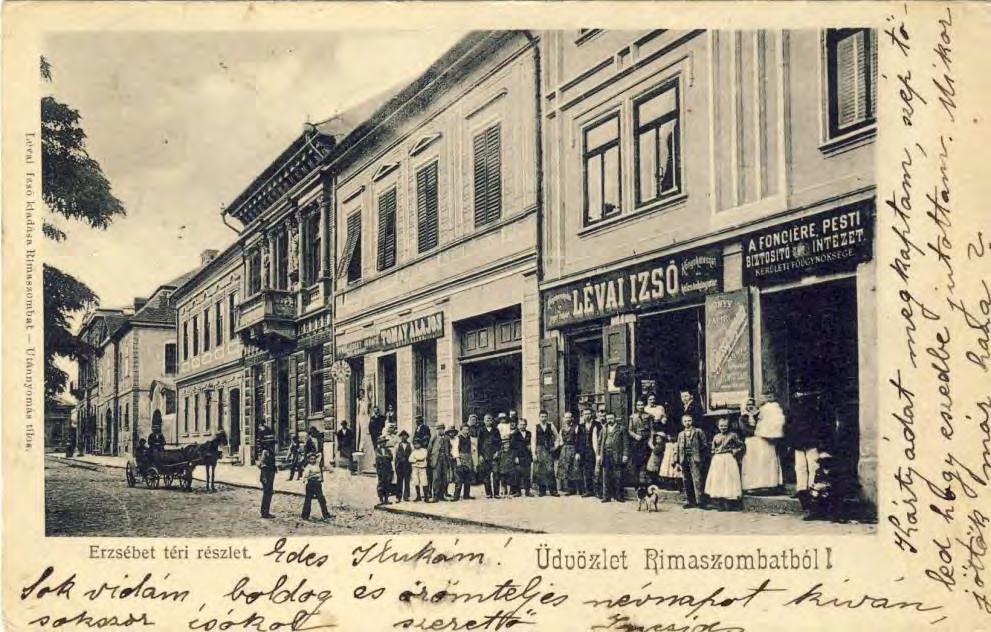 Lévai Izsó kiadása Rimaszombat — Utánnyomás tilos.
TOMAY ALAJOS
LÉVAI IZSÓ
A FONCIÈRE PESTI
BIZTOSITÓ INTÉZET
KERÜLETI FŐÜGYNÖKSÉGE
Erzsébet téri részlet.
Üdvözlet Rimaszombatból!
Édes Ilukám!
Sok vidám, boldog és örömteljes névnapot kíván,
sokszor csókol szerető
Kártyádat megkaptam, szép tő-
led hogy eszedbe jutottam. Mikor
jöttök már haza?